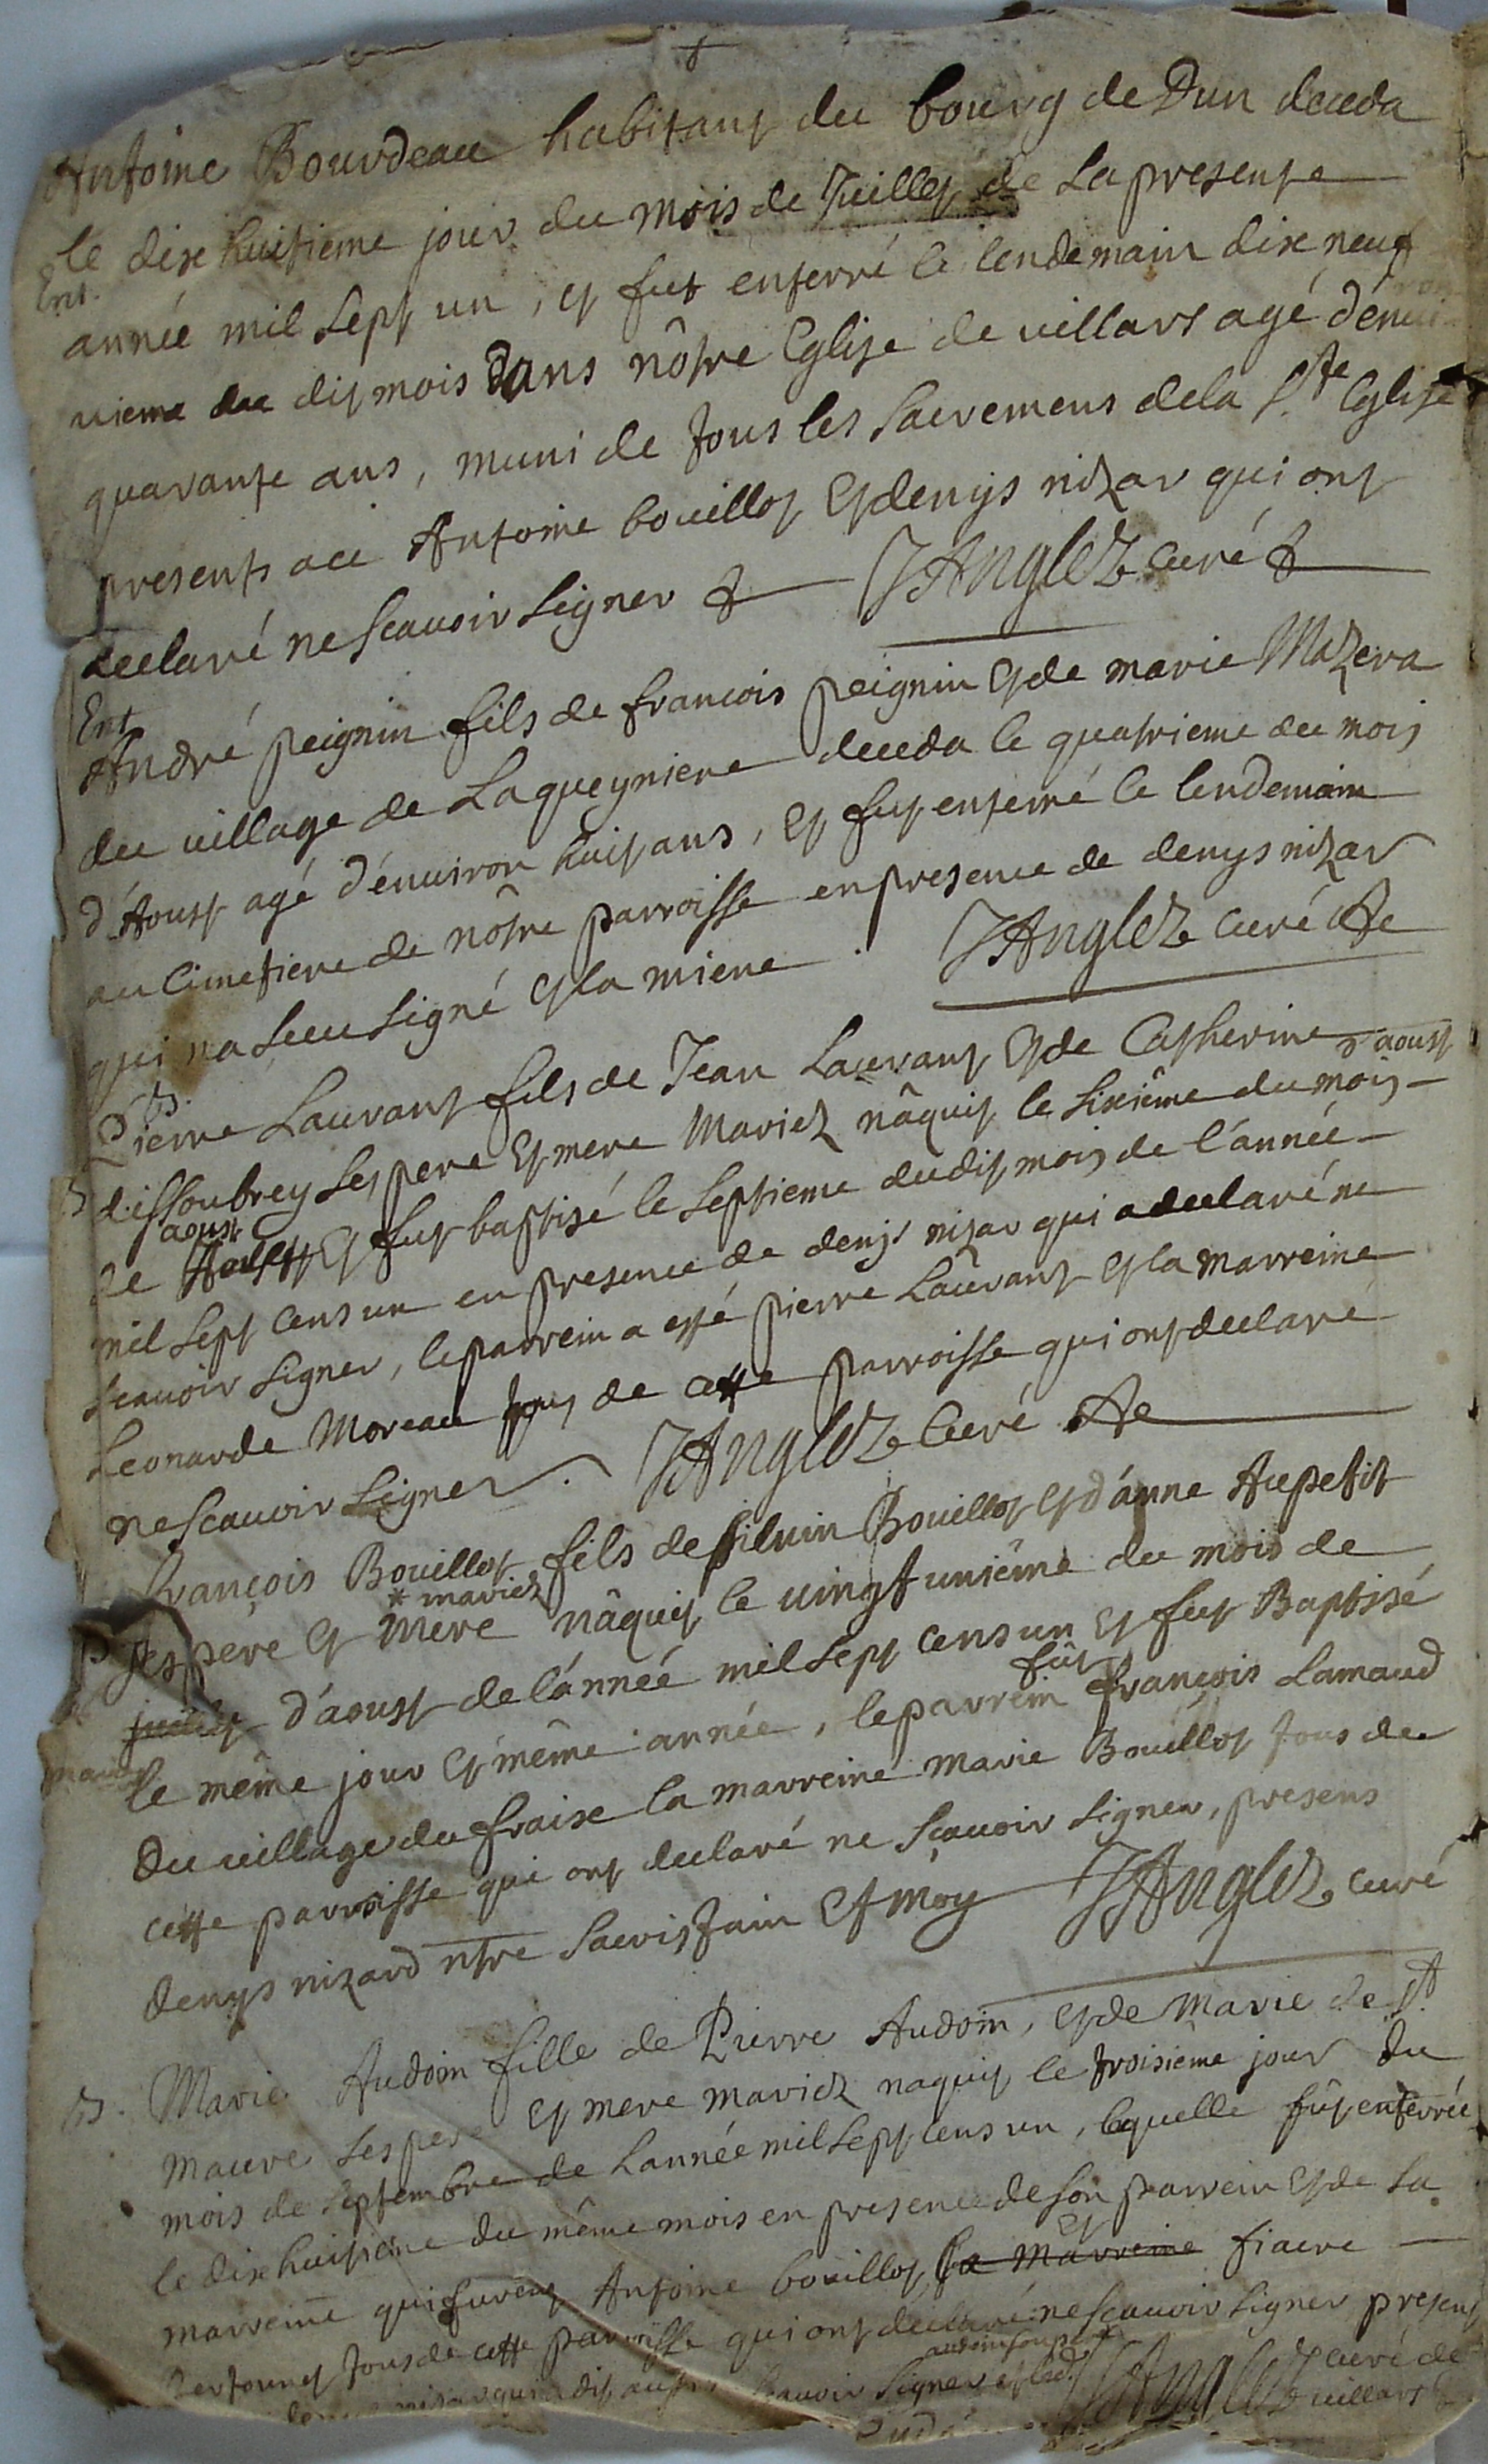 Antoine Bourdeau habitant du bourg de Dun deceda
le dix huitieme jour du mois de Juillet de La presente
Ent.
année mil sept un, et fut enterré le lendemain dix neuf
vieme du dit mois Dans nôtre Eglise de villars agé d'environ
quarante ans, muni de tous les sacremens de la Ste Eglise
presents a ce Antoine bouillot et denys nizar qui ont
declaré ne scauoir signer J Anglez curé
Ent
André peignin fils de francois peignin et de marie Mazera
du uillage de Lagueyniere deceda le quatrieme du mois
d'Aoust agé d'enuiron huit ans, et fut enterré le lendemain
au Cimetiere de nôtre parroisse en presence de denys nizar
qui na sceu signé et la miene. J Anglez curé
B.
Pierre Laurant fils de Jean Laurant et de Catherine
d'issoubrey ses pere et mere Mariez nâquit le sixiême du mois d'aoust
de aoust et fut baptisé le septieme du dit mois de l'année
mil sept cens un en presence de denys nizar qui a declaré ne
scauoir signer, le parrein a esté pierre Laurant et la marreine
Leonarde Moreau tous de cette parroisse qui ont declaré
ne scauoir signer. J Anglez Curé
françois Bouillot fils de silvin Bouillot et d'anne Aupetit
* mariez
ses pere et mere nâquit le vingt uniême du mois de
juillet d'aoust de l'année mil sept cens un et fut Baptisé
le même jour et même année, le parrein fût françois Lamaud
Du uillage du fraise la marreine marie Bouillot tous de
cette parroisse qui ont declaré ne scauoir signer, presens
denys nizard ntre sacristain et moy J Anglez curé
B. Marie Audoin fille de Pierre Audoin, et de Marie de St
Maure ses pere et mere mariez naquit le troisième jour du
mois de septembre de L'année mil sept cens un, laquelle fût enterrée
le dix huitieme du même mois en presence de son parrein et de sa
marreine qui furent Antoine bouillot, la marreine et fiacre
tous de cette parroisse qui ont déclaré ne scauoir signer presens
scauoir signer J Anglez curé de
uillars